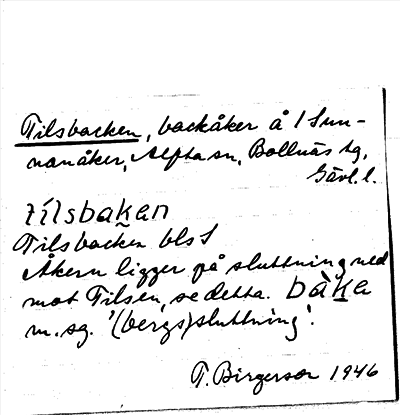 Tilsbacken, backåker å 1 Sun-
nanåker, Alfta sn, Bollnäs tg,
Gävl. l.
tílsbaḵan
Tilsbacken bls 1
Åkern ligger på sluttning ned
mot Tilsen, se detta. bàḵa
m. sg. '(bergs)sluttning'.
T. Birgerson 1946